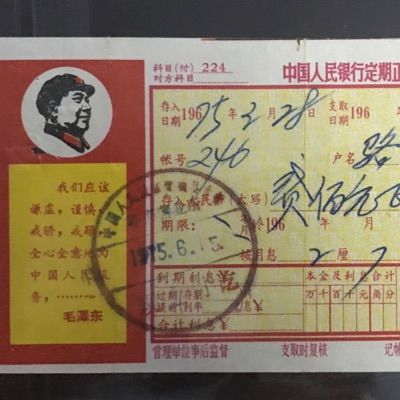 科目(付) 224
对方科目
中国人民银行定期正
存入日期 196 75年 2月 28
支取日期 196 年
帐号 246
户名 路
存入人民币(大写) 贰佰元
期限: 196 年 月
按月息 2 厘 7
到期利息
本金及利息合计
过期(存期)
万千百十元角分
合计利息
管理单位事后监督
支取时复核
记帐
我们应该
谦虚,谨慎,
戒骄,戒躁,
全心全意地为
中国人民服
务,……
毛泽东
1975.6.15.